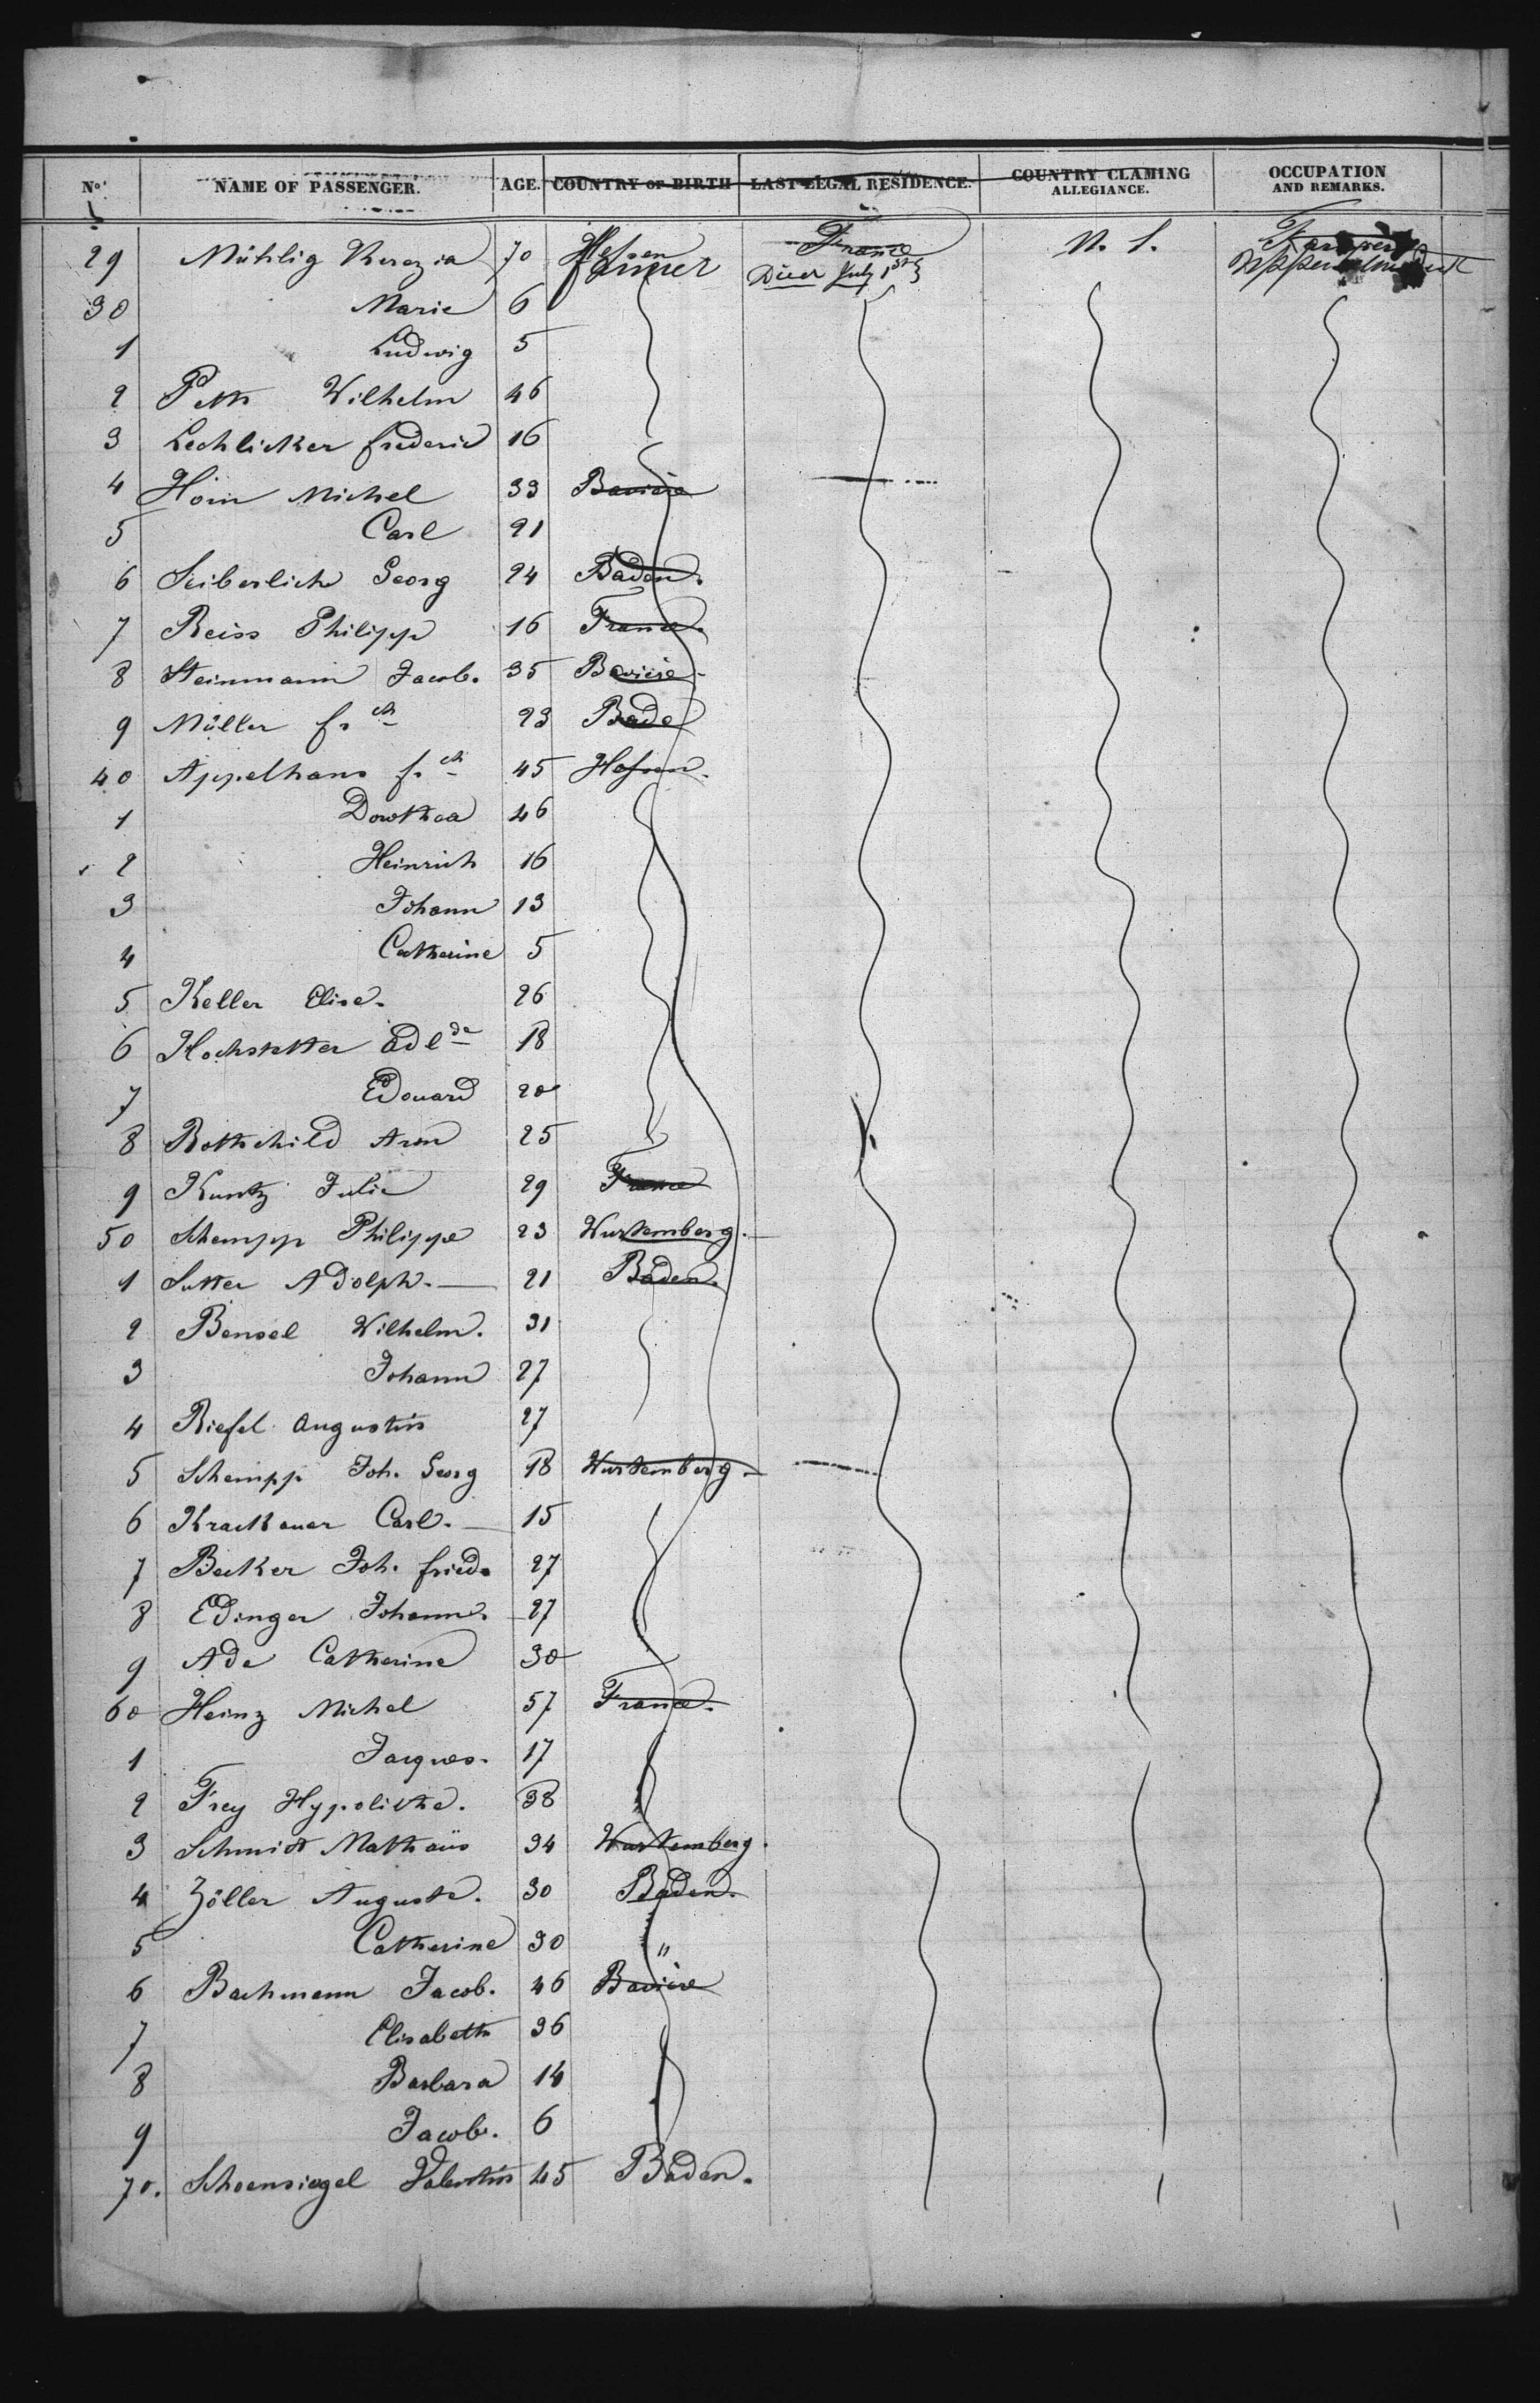 No. NAME OF PASSENGER. AGE. COUNTRY OF BIRTH LAST LEGAL RESIDENCE. COUNTRY CLAMING ALLEGIANCE. OCCUPATION AND REMARKS.
29 Mühlig 70 Hessen Farmer France Died July 1st N. S. Farmer
30 Marie 6
1 Ludwig 5
2 Peth Wilhelm 46
3 Lechlicker frederic 16
4 Höin Michel 33 Baviere
5 Carl 21
6 Seiberlich Georg 24 Baden.
7 Reiss Philipp 16 France.
8 Steinmann Jacob. 35 Baviere
9 Müller fr.ch 23 Bade
40 Appelhans fr.ch 45 Hessen.
1 Dorothea 46
2 Heinrich 16
3 Johann 13
4 Catherine 5
5 Keller Elise. 26
6 Hochstetter Adlde 18
7 Edouard 20
8 Rothschild Aron 25
9 Kuntz Julie 29 France
50 Schempp Philippe 23 Wurtemberg.
1 Sutter Adolph. 21 Baden.
2 Bensel Wilhelm. 31
3 Johann 27
4 Riefel Augustin 27
5 Schempp Joh. Georg 18 Wurtemberg
6 Krackauer Carl. 15
7 Becker Joh. fried. 27
8 Edinger Johann. 27
9 Ade Catherine 30
60 Heinz Michel 57 France.
1 Jacques. 17
2 Frey Hypolithe. 38
3 Schmidt Mathäus 34 Wurtemberg.
4 Zöller Auguste. 30 Baden.
5 Catherine 30 "
6 Bachmann Jacob. 46 Baviére
7 Elisabeth 36
8 Barbara 14
9 Jacob. 6
70. Schoensiegel Valentin 45 Baden.